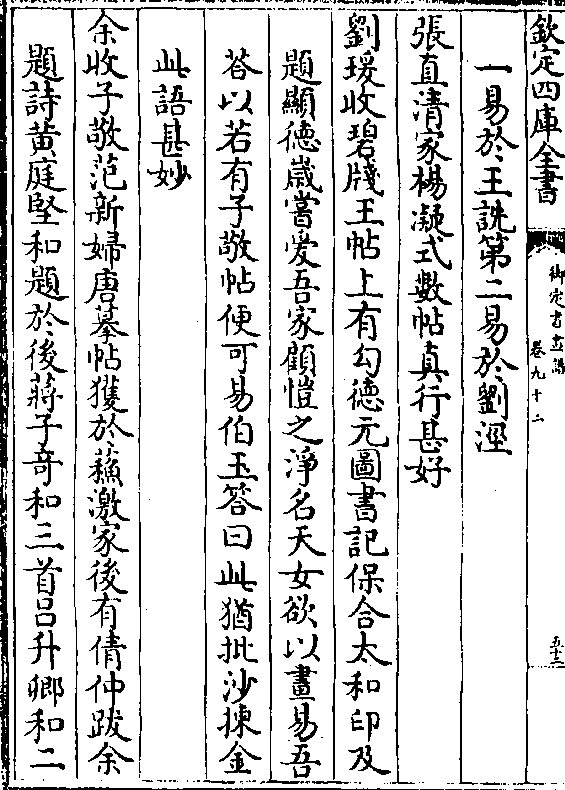 欽定四庫全書
御定書畫譜
卷九十二
五十三
一易於王詵第二易於劉涇
張直清家楊凝式數帖真行甚好
劉瑗收碧牋王帖上有勾德元圖書記保合太和印及
題顯德歳嘗愛吾家顧愷之淨名天女欲以畫易吾
荅以若有子敬帖便可易伯玉答曰此猶披沙揀金
此語甚妙
余收子敬范新婦唐摹帖獲於蘓激家後有倩仲跋余
題詩黄庭堅和題於後蔣子竒和三首吕升卿和二